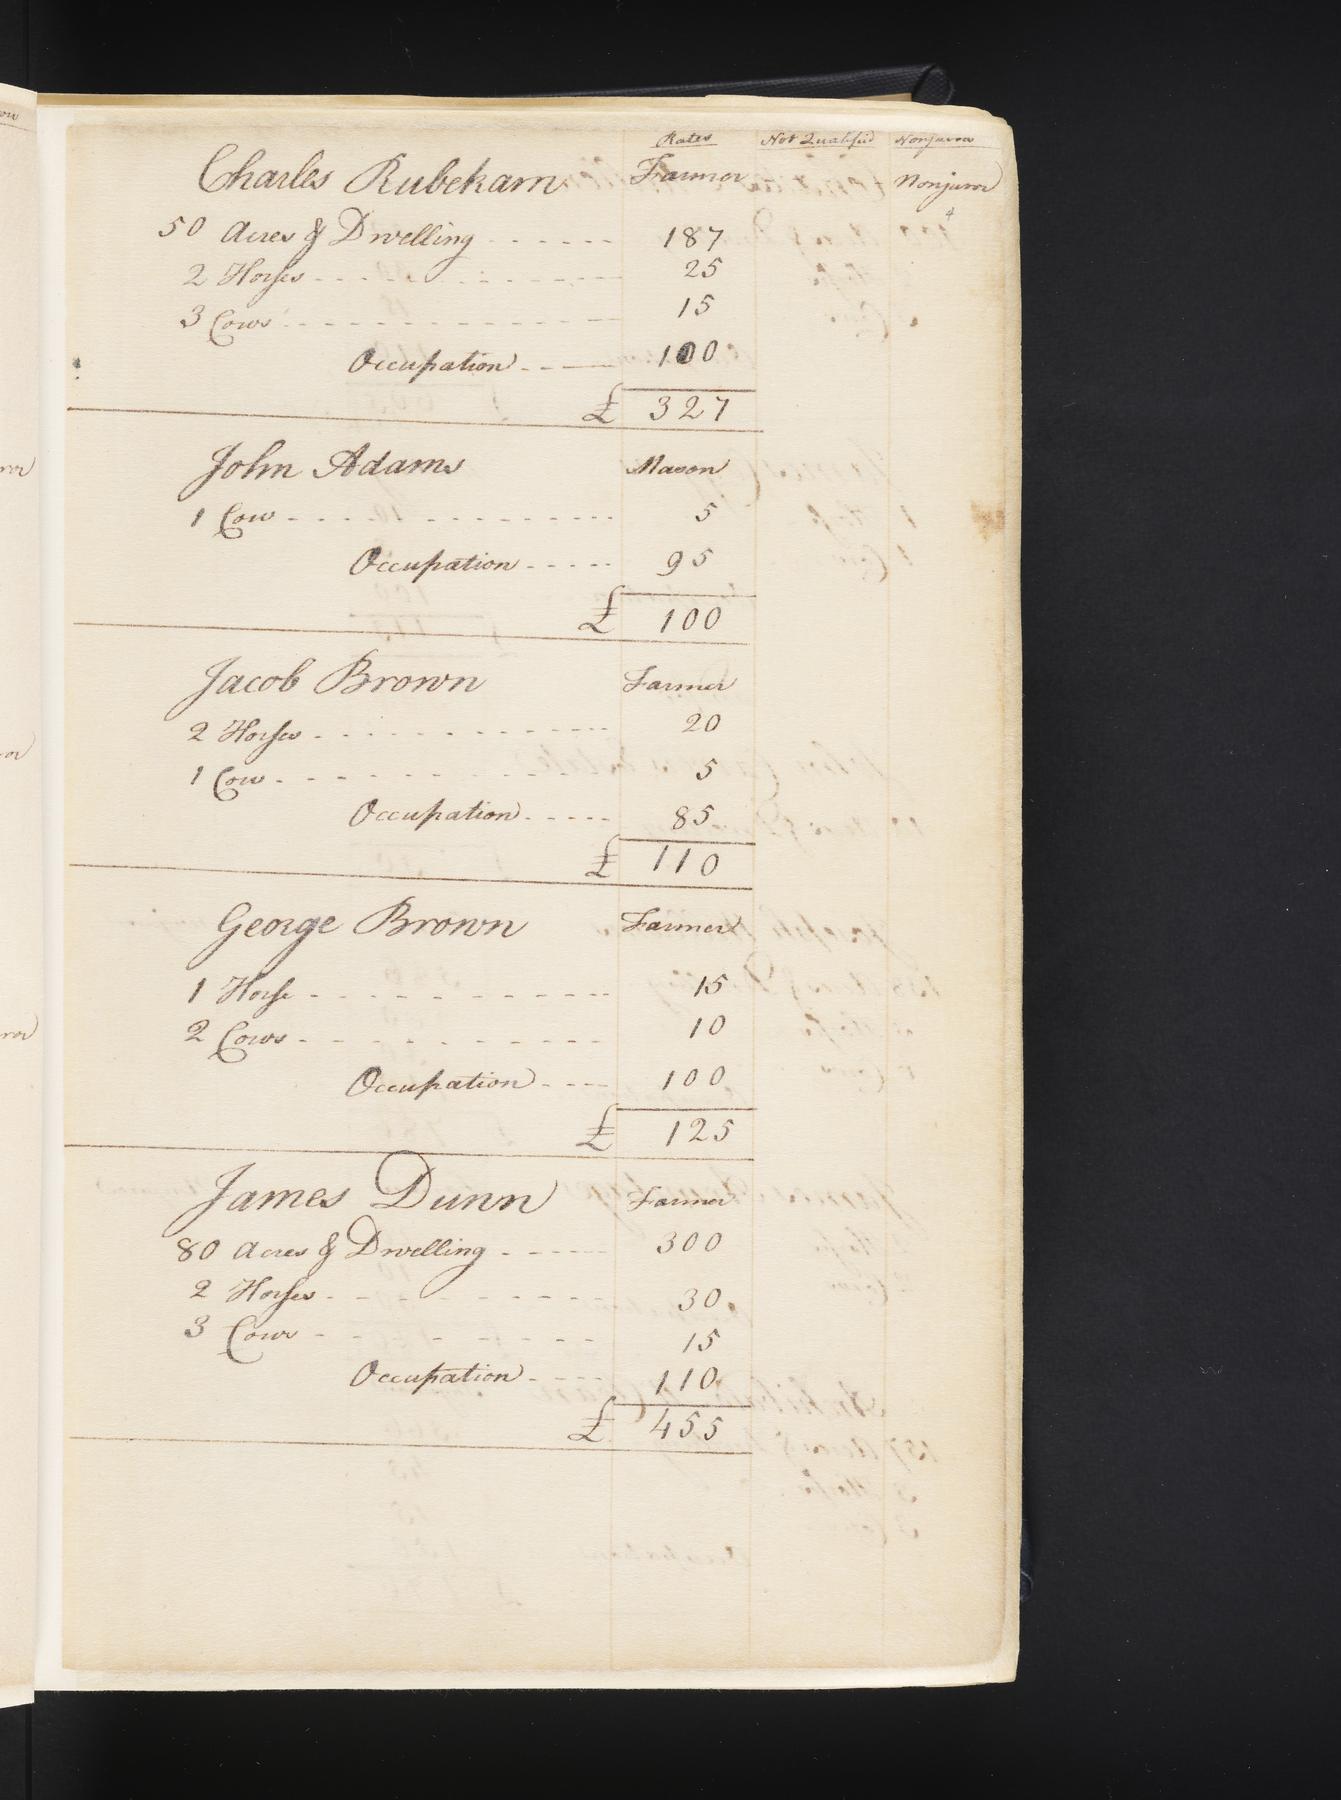 Rates Not Qualified Nonjuror
Charles Rubekam Farmer Nonjuror
4
50 Acres & Dwelling ------ 187
2 Horses ------ 25
3 Cows ------ 15
Occupation ---- 100
£ 327
John Adams Mason
1 Cow ------ 5
Occupation ----- 95
£ 100
Jacob Brown Farmer
2 Horses ------ 20
1 Cow ------ 5
Occupation ----- 85
£ 110
George Brown Farmer
1 Horse ------ 15
2 Cows ------ 10
Occupation ---- 100
£ 125
James Dunn Farmer
80 Acres & Dwelling ----- 300
2 Horses ------ 30
3 Cows ------ 15
Occupation ---- 110
£ 455